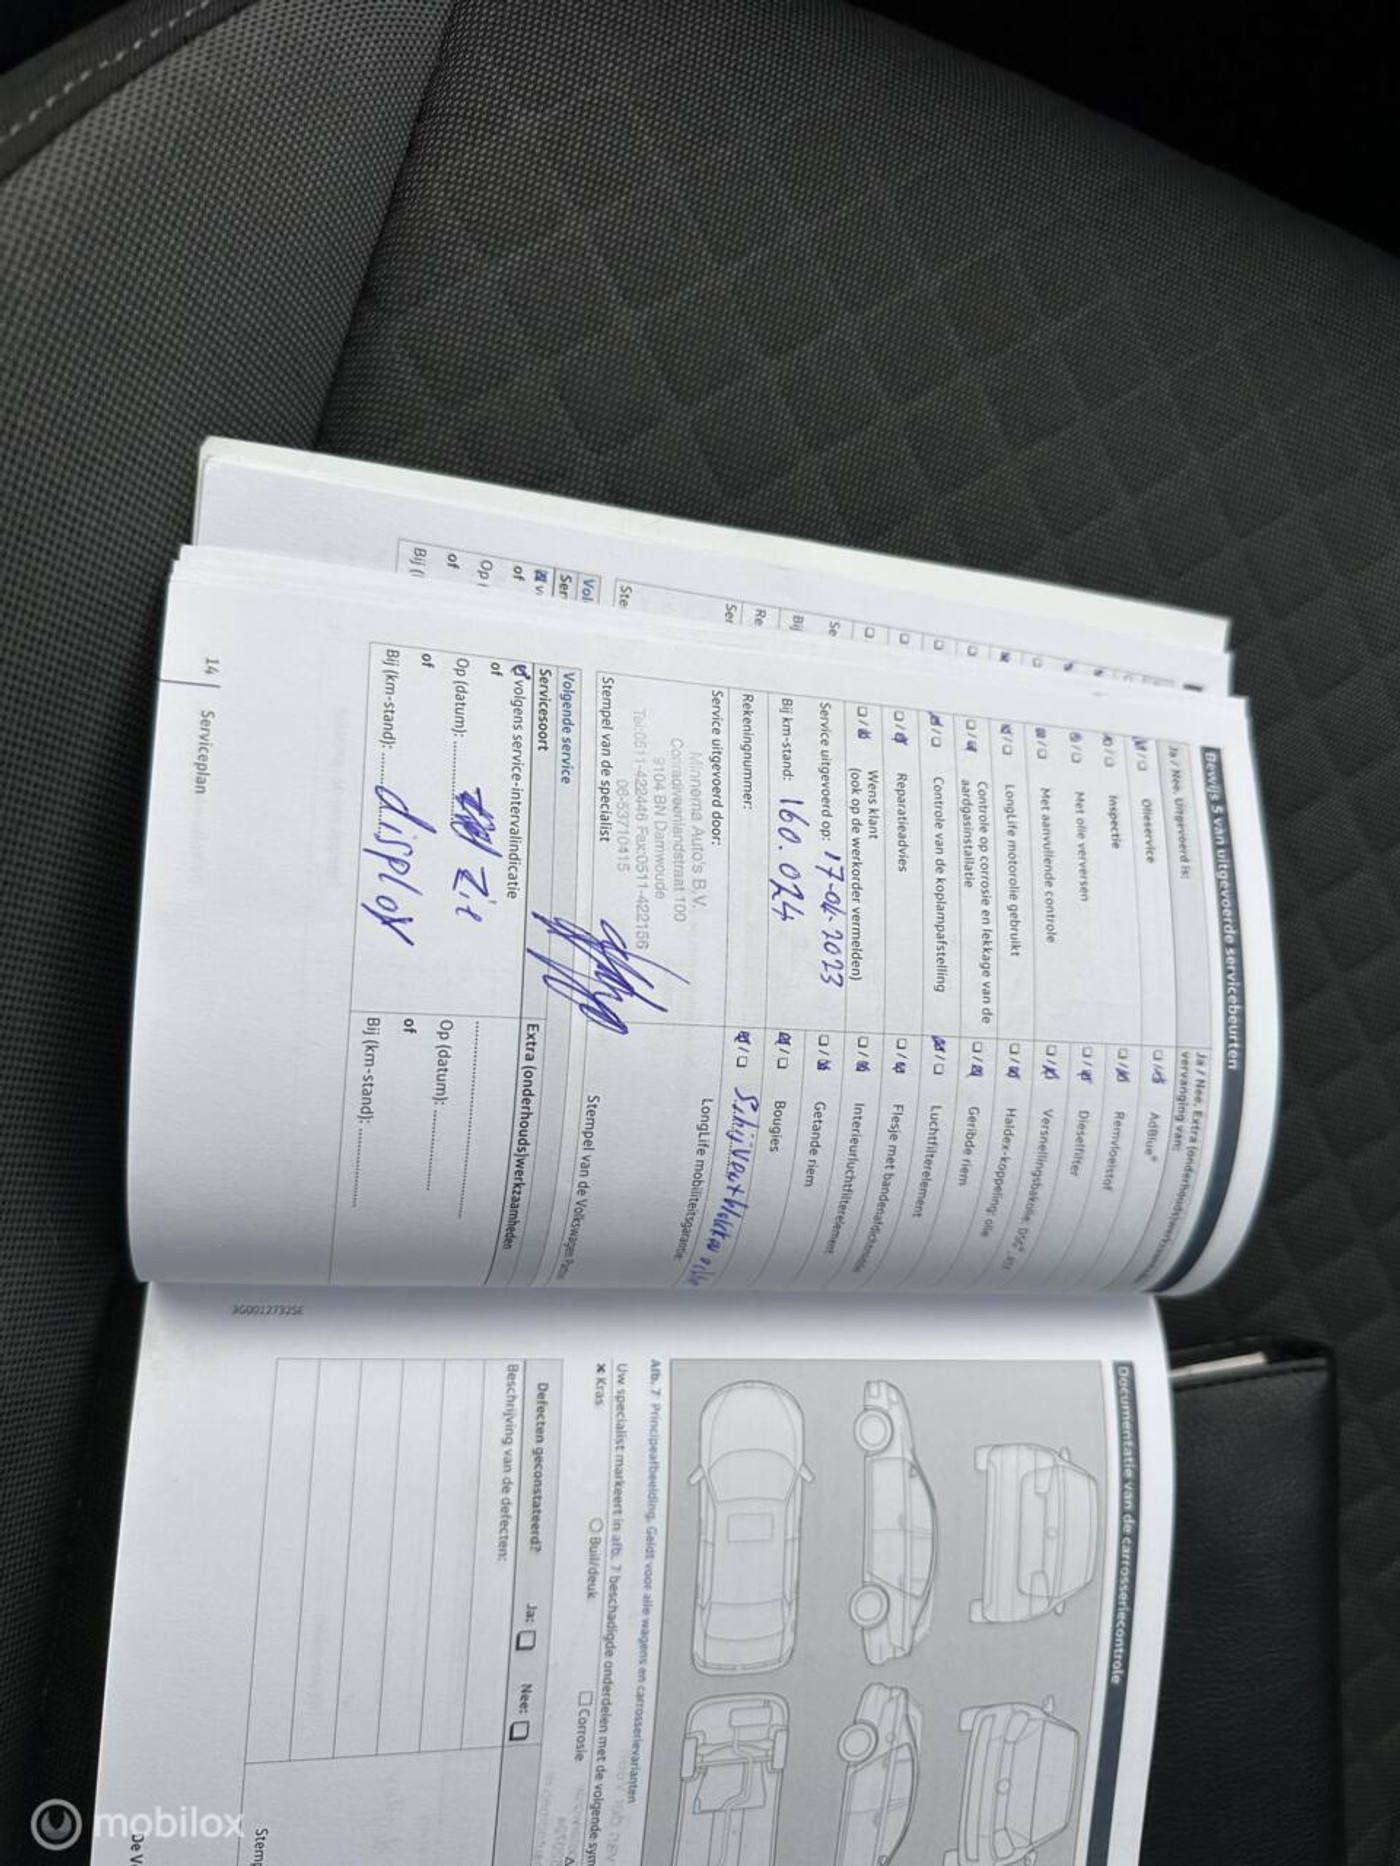 Bewijs 5 van uitgevoerde servicebeurten
Ja / Nee. Uitgevoerd is:
Olieservice
Inspectie
Met olie verversen
Met aanvullende controle
LongLife motorolie gebruikt
Controle op corrosie en lekkage van de
aardgasinstallatie
Controle van de koplampafstelling
Reparatieadvies
Wens klant
(ook op de werkorder vermelden)
Service uitgevoerd op: 17-04-2023
Bij km-stand: 160.024
Rekeningnummer:
Service uitgevoerd door:
Minnema Auto's B.V.
Conradiveenlandstraat 100
9104 BN Damwoude
Tel:0511-422446 Fax:0511-422156
06-53710415
Stempel van de specialist
Ja / Nee. Extra (onderhouds)
vervanging van:
AdBlue®
Remvloeistof
Dieselfilter
Versnellingsbakolie: DSG®
Haldex-koppeling: olie
Geribde riem
Luchtfilterelement
Flesje met bandenafdichtmiddel
Interieurluchtfilterelement
Getande riem
Bougies
LongLife mobiliteitsgarantie
Stempel van de Volkswagen
Volgende service
Servicesoort
volgens service-intervalindicatie
of
Op (datum): zie
of
Bij (km-stand): display
Extra (onderhouds)werkzaamheden
Op (datum):
of
Bij (km-stand):
14 | Serviceplan
Vol
Ser
of
Op
of
Bij (
Ste
Ser
Re
Bij
Se
Documentatie van de carrosseriecontrole
Afb. 7 Principeafbeelding. Geldt voor alle wagens en carrosserievarianten
Uw specialist markeert in afb. 7 beschadigde onderdelen met de volgende sym
× Kras
○ Buil/deuk
□ Corrosie
Defecten geconstateerd? Ja: Nee:
Beschrijving van de defecten:
3G0012732SE
Stemp
De V
mobilox